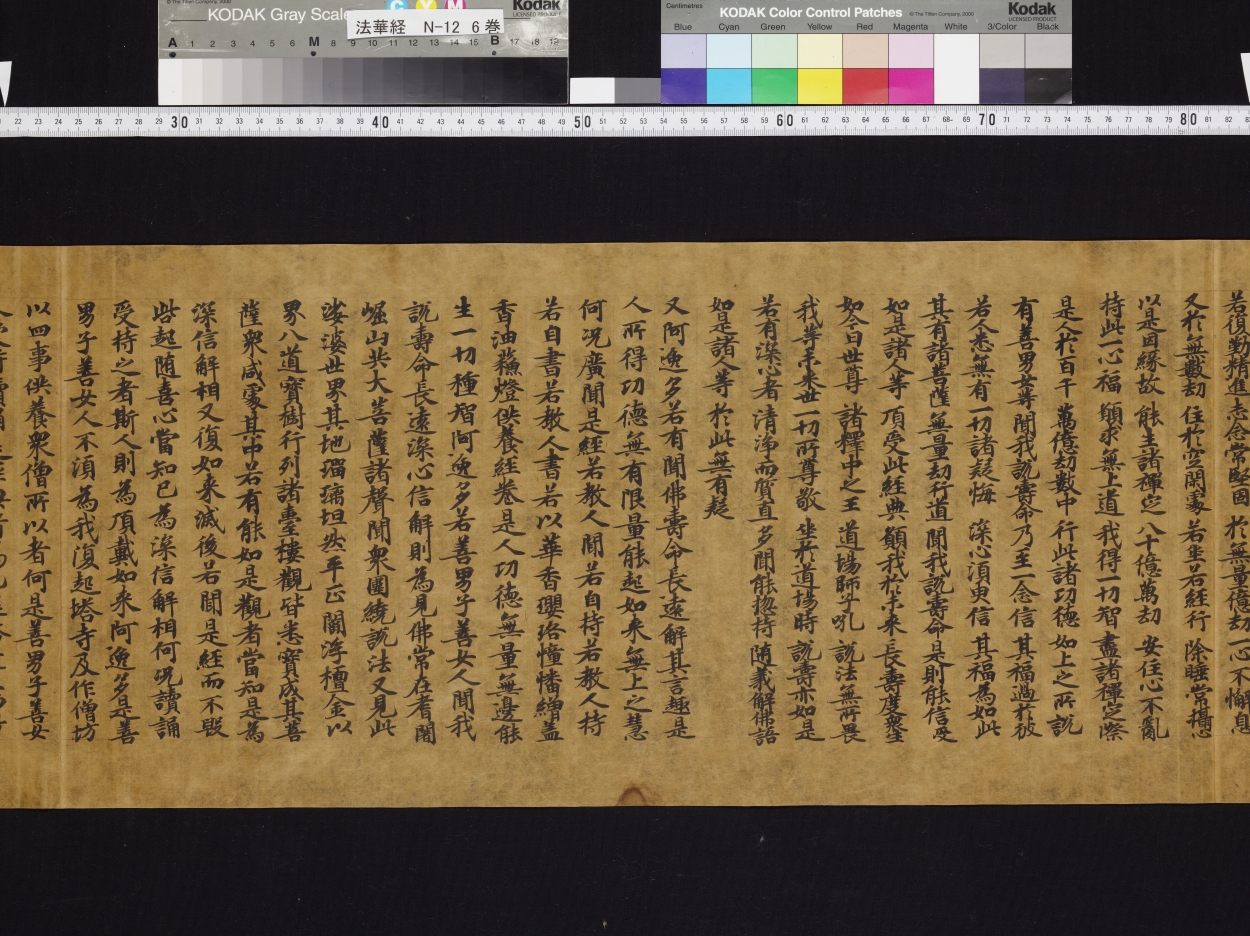 © The Tiffen Company, 2000
KODAK Gray Scale
C Y M
Kodak
LICENSED PRODUCT
法華経 N-12 6巻
A 1 2 3 4 5 6 M 8 9 10 11 12 13 14 15 B 17 18 19
Centimetres
KODAK Color Control Patches
© The Tiffen Company, 2000
Kodak
LICENSED PRODUCT
Blue Cyan Green Yellow Red Magenta White 3/Color Black
22 23 24 25 26 27 28 29 30 31 32 33 34 35 36 37 38 39 40 41 42 43 44 45 46 47 48 49 50 51 52 53 54 55 56 57 58 59 60 61 62 63 64 65 66 67 68 69 70 71 72 73 74 75 76 77 78 79 80 81 82
若復勤精進 志念常堅固 於無量億劫 一心不懈息
又於無數劫 住於空閑處 若坐若經行 除睡常攝心
以是因緣故 能生諸禪定 八十億萬劫 安住心不亂
持此一心福 願求無上道 我得一切智 盡諸禪定際
是人於百千 萬億劫數中 行此諸功德 如上之所說
有善男女等 聞我說壽命 乃至一念信 其福過於彼
若人悉無有 一切諸疑悔 深心須臾信 其福為如此
其有諸菩薩 無量劫行道 聞我說壽命 是則能信受
如是諸人等 頂受此經典 願我於未來 長壽度衆生
如今日世尊 諸釋中之王 道場師子吼 說法無所畏
我等未來世 一切所尊敬 坐於道場時 說壽亦如是
若有深心者 清淨而質直 多聞能揔持 随義解佛語
如是諸人等 於此無有疑
又阿逸多若有聞佛壽命長遠解其言趣是
人所得功德無有限量能起如來無上之慧
何況廣聞是經若教人聞若自持若教人持
若自書若教人書若以華香瓔珞幢幡繒盖
香油蘇燈供養經卷是人功德無量無邊能
生一切種智阿逸多若善男子善女人聞我
說壽命長遠深心信解則為見佛常在耆闍
崛山共大菩薩諸聲聞衆圍繞說法又見此
娑婆世界其地瑠璃坦然平正閻浮檀金以
界八道寶樹行列諸臺樓觀皆悉寶成其菩
薩衆咸處其中若有能如是觀者當知是為
深信解相又復如来滅後若聞是經而不毀
呰起随喜心當知已為深信解相何況讀誦
受持之者斯人則為頂戴如来阿逸多是善
男子善女人不須為我復起塔寺及作僧坊
以四事供養衆僧所以者何是善男子善女